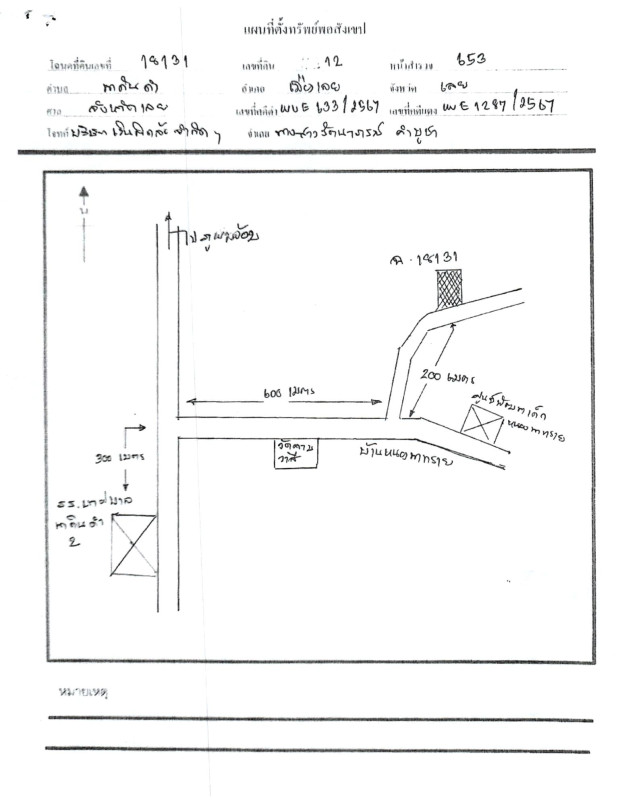 แผนที่ตั้งทรัพย์พอสังเขป
โฉนดที่ดินเลขที่ 18131 เลขที่ดิน 12 หน้าสำรวจ 653
ตำบล นาดินดำ อำเภอ เมืองเลย จังหวัด เลย
ศาล จังหวัดเลย เลขที่คดีดำ ผบE 633/2567 เลขที่คดีแดง ผบE 1287/2567
โจทก์ บริษัท เงินติดล้อ จำกัด ฯ จำเลย นางสาว รัตนาภรณ์ คำบูชา
น
ไป ภูผาม้อย
ฉ. 18131
200 เมตร
600 เมตร
ศูนย์พัฒนาเด็ก
หนองนาทราย
300 เมตร
บ้านหนองนาทราย
รร. เทศบาล
นาดินดำ
2
หมายเหตุ